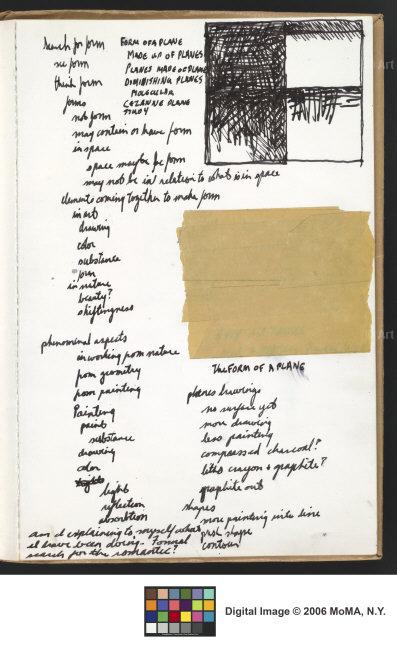 Search for form
see form
think form
forms
not form
may contain or have form
in space
space maybe be form
may not be in relation to what is in space
elements coming together to make form
in art
drawing
color
substance
form
in nature
beauty?
shiftingness
phenomenal aspects
in working from nature
from geometry
from painting
Painting
paint
substance
drawing
color
light
reflection
absorbtion
am I explaining to myself what
I have been doing. Formal
search for the romantic?
FORM OF A PLANE
MADE UP OF PLANES
PLANES MADE OF PLANES
DIMINISHING PLANES
MOLECULAR
CEZANNE PLANE
STUDY
THE FORM OF A PLANE
planes drawings
no surface yet
more drawing
less painting
compressed charcoal?
litho crayon + graphite?
graphite out
shapes
more painting with line
shape
contour
Art
Art
Digital Image © 2006 MoMA, N.Y.